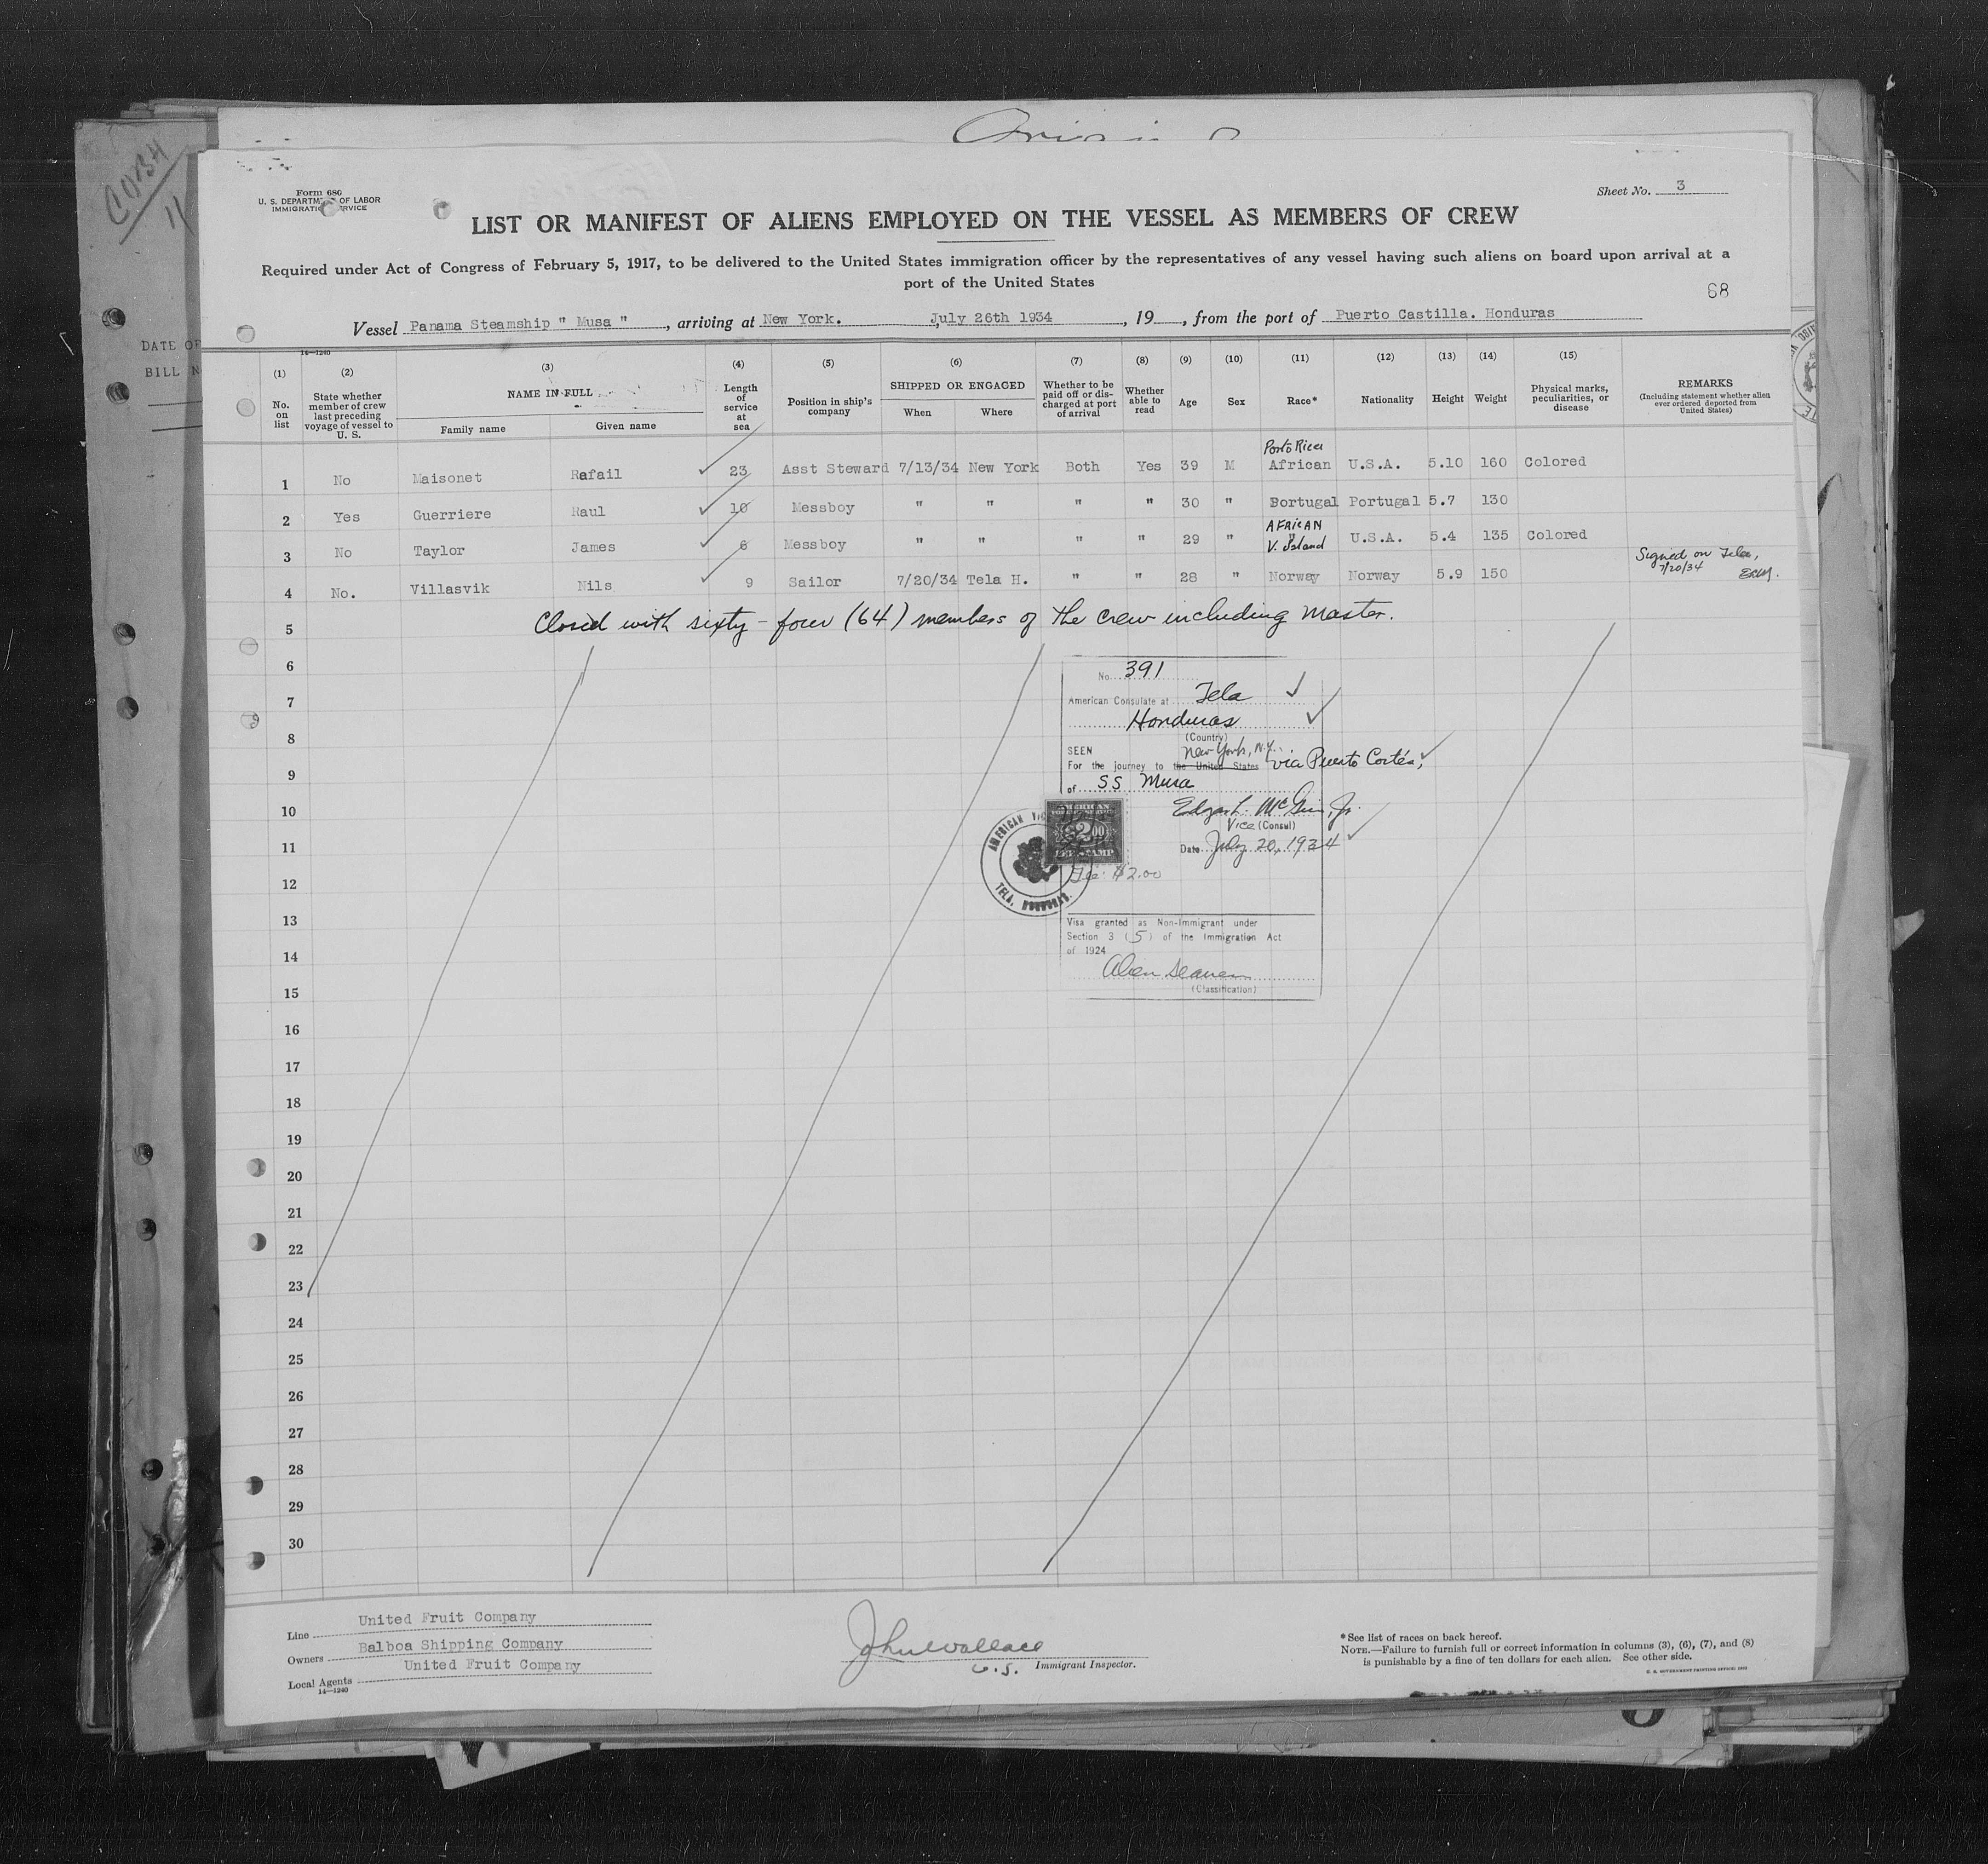 CON34
11
DATE OF
BILL N
Form 680
U. S. DEPARTMENT OF LABOR
IMMIGRATION SERVICE
Sheet No. 3
LIST OR MANIFEST OF ALIENS EMPLOYED ON THE VESSEL AS MEMBERS OF CREW
Required under Act of Congress of February 5, 1917, to be delivered to the United States immigration officer by the representatives of any vessel having such aliens on board upon arrival at a
port of the United States
68
Vessel Panama Steamship " Musa ", arriving at New York. , July 26th 1934, 19 , from the port of Puerto Castilla. Honduras
14—1240
(1) (2) (3) (4) (5) (6) (7) (8) (9) (10) (11) (12) (13) (14) (15)
No. on list
State whether member of crew last preceding voyage of vessel to U. S.
NAME IN FULL
Family name
Given name
Length of service at sea
Position in ship's company
SHIPPED OR ENGAGED
When
Where
Whether to be paid off or discharged at port of arrival
Whether able to read
Age
Sex
Race*
Nationality
Height
Weight
Physical marks, peculiarities, or disease
REMARKS
(Including statement whether alien ever ordered deported from United States)
Porto Rican
1 No Maisonet Rafail 23 Asst Steward 7/13/34 New York Both Yes 39 M African U.S.A. 5.10 160 Colored
2 Yes Guerriere Raul 10 Messboy " " " " 30 " Portugal Portugal 5.7 130
AFRICAN
3 No Taylor James 6 Messboy " " " " 29 " " V. Island U.S.A. 5.4 135 Colored
4 No. Villasvik Nils 9 Sailor 7/20/34 Tela H. " " 28 " Norway Norway 5.9 150 Signed on Tela,
7/20/34
5 Closed with sixty-four (64) members of the crew including Master.
6
7
8
9
10
11
12
13
14
15
16
17
18
19
20
21
22
23
24
25
26
27
28
29
30
No. 391
American Consulate at Tela
Honduras
(Country)
SEEN
New York, N.Y.
For the journey to the United States via Puerto Cortés,
of SS Musa
Vice (Consul)
Date July 20, 1934
AMERICAN
$2.00
FEE STAMP
AMERICAN VICE
TELA, HONDURAS.
Fee: $2.00
Visa granted as Non-Immigrant under
Section 3 (5) of the Immigration Act
of 1924
Alien Seamen
(Classification)
Line United Fruit Company
Owners Balboa Shipping Company
Local Agents United Fruit Company
14—1240
John Wallace
U.S. Immigrant Inspector.
*See list of races on back hereof.
NOTE.—Failure to furnish full or correct information in columns (3), (6), (7), and (8)
is punishable by a fine of ten dollars for each alien. See other side.
U. S. GOVERNMENT PRINTING OFFICE: 1932